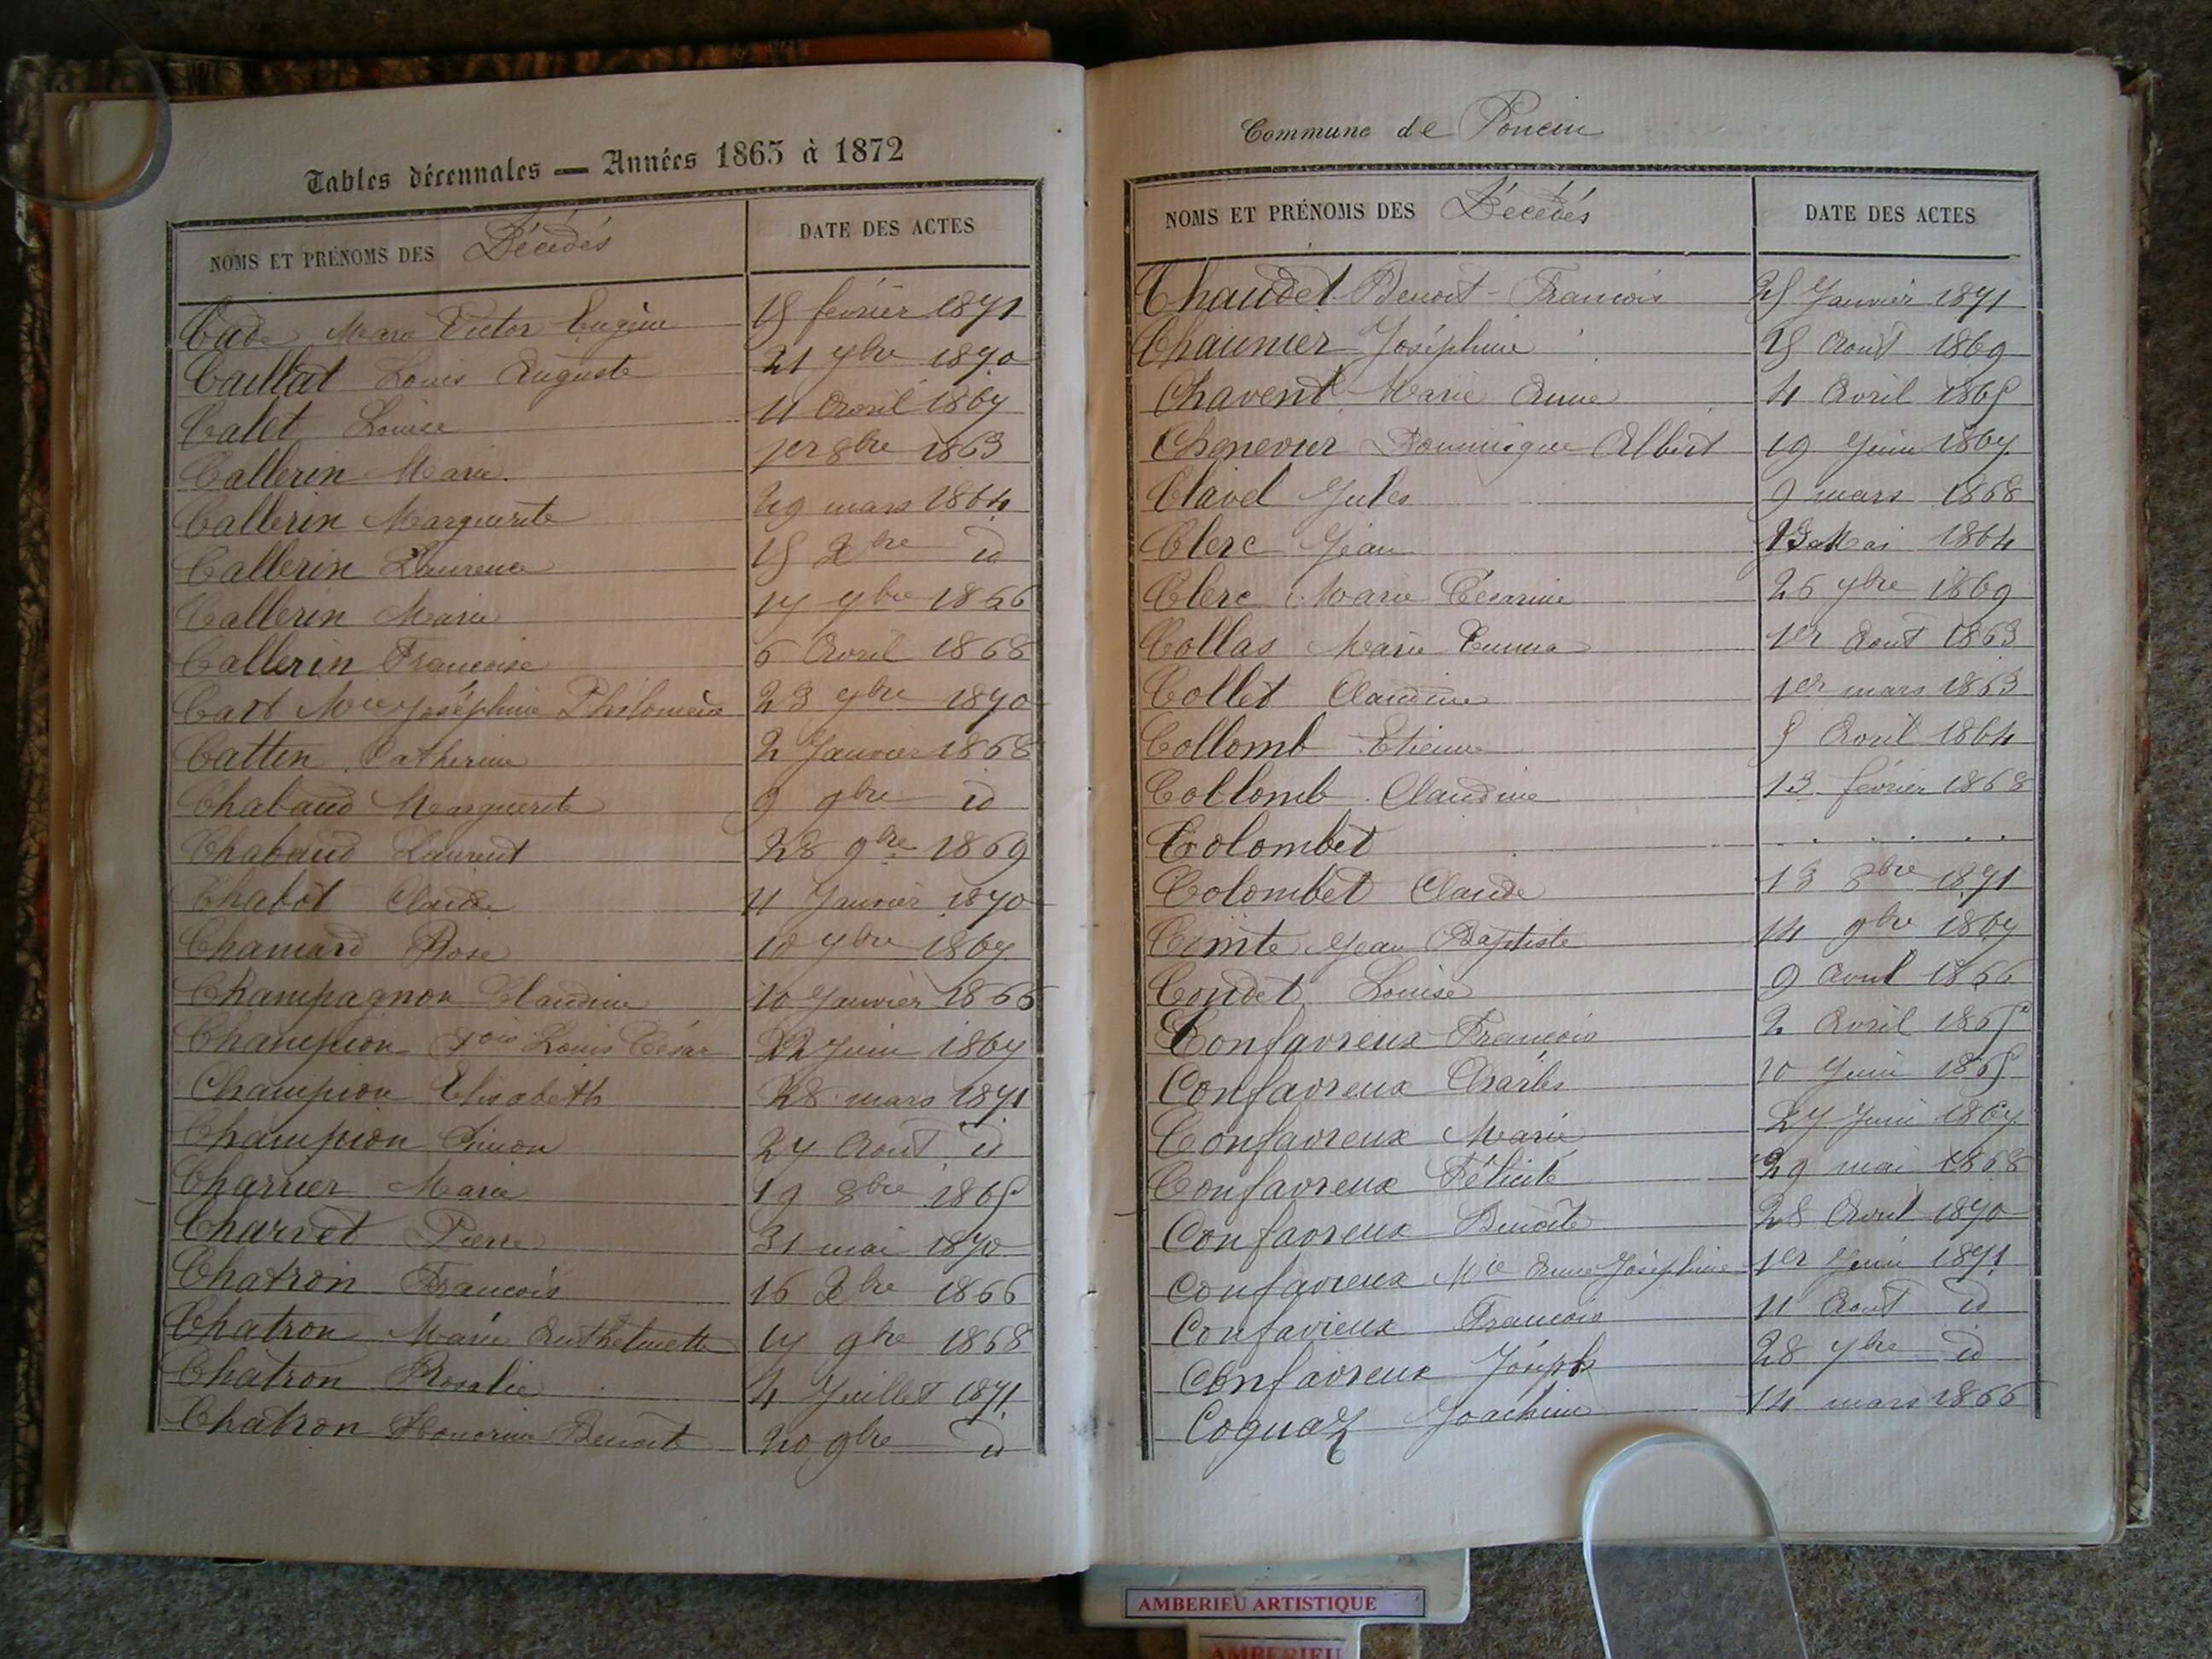 Tables décennales — Années 1863 à 1872
NOMS ET PRÉNOMS DES Décédés DATE DES ACTES
Cade Marc Victor Eugène 15 février 1871
Caillat Louis Auguste 21 7bre 1870
Calet Louise 11 Avril 1867
Callerin Marie 1er 8bre 1863
Callerin Marguerite 29 mars 1864
Callerin Laurence 15 Xbre id
Callerin Marie 17 9bre 1866
Callerin Françoise 6 Avril 1868
Cart Mie Joséphine Philomène 23 7bre 1870
Catten Catherine 2 Janvier 1868
Chabaud Marguerite 9 9bre id
Chabaud Laurent 28 9bre 1869
Chabot Claude 11 Janvier 1870
Chamard Rose 10 7bre 1867
Champagnon Claudine 10 Janvier 1866
Champion Fois Louis César 22 Juin 1867
Champion Elisabeth 28 mars 1871
Champion Simon 27 Août id
Charrier Marie 19 8bre 1865
Charvet Pierre 31 mai 1870
Chatron François 16 Xbre 1866
Chatron Marie Anthelmette 17 9bre 1868
Chatron Rosalie 4 Juillet 1871
Chatron Honorine Benoite 20 9bre id
Commune de Poncin
NOMS ET PRÉNOMS DES Décédés DATE DES ACTES
Chaudet Benoit-François 25 Janvier 1871
Chaumier Joséphine 25 Août 1869
Chavent Marie Anne 4 Avril 1865
Chenevier Dominique Albert 19 Juin 1867
Clavel Jules 9 mars 1868
Clerc Jean Mai 1864
Clerc Marie Césarine 26 7bre 1869
Collas Marie Emma 1er Août 1863
Collet Claudine 1er mars 1863
Collomb Etienne 5 Avril 1864
Collomb Claudine 13 février 1868
Colombet . . . . .
Colombet Claude 13 8bre 1871
Comte Jean Baptiste 14 9bre 1867
Coudet Louise 9 Avril 1866
Confavreux François 2 Avril 1865
Confavreux Charles 10 Juin 1865
Confavreux Marie 27 Juin 1867
Confavreux Félicité 29 mai 1868
Confavreux Benoite 28 Avril 1870
Confavreux Mie Anne Joséphine 1er Juin 1871
Confavreux François 11 Août id
Confavreux Joseph 28 7bre id
Coquaz Joachim 14 mars 1866
AMBERIEU ARTISTIQUE
AMBERIEU